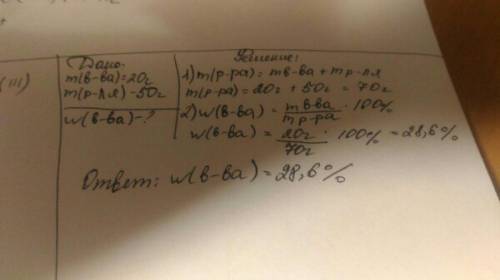 Дано:
m(в-ва)=20г
m(р-ля)-50г
w(в-ва)-?
(III)
Решение:
1) m(р-ра) = mв-ва + mр-ля
m(р-ра) = 20г + 50г = 70г
2) w(в-ва) = mв-ва/mр-ра · 100%
w(в-ва) = 20г/70г · 100% = 28,6%
Ответ: w(в-ва) = 28,6%